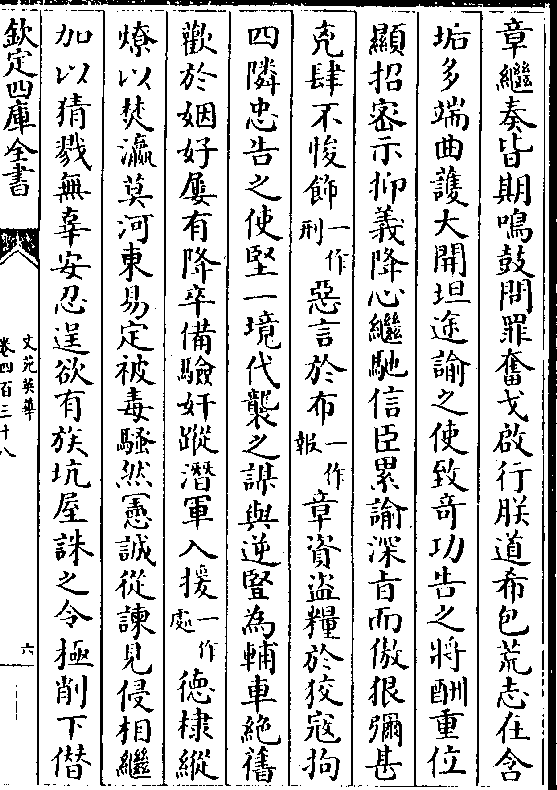 章繼奏皆期鳴鼓問罪奮戈啟行朕道希包荒志在含
垢多端曲護大開坦途諭之使致竒功告之將酬重位
顯招密示抑義降心繼馳信臣累諭深㫖而傲狠彌甚
兇肆不悛飾一作刑惡言於布一作報章資盜糧於狡寇拘
四隣忠告之使堅一境代襲之謀與逆豎為輔車絶舊
歡於姻好屢有降卒備驗奸蹤潛軍入援一作處德棣縱
燎以焚瀛莫河東易定被毒騷然憲誠從諫見侵相繼
加以猜戮無辜安忍逞欲有族坑屋誅之令極削下僭
欽定四庫全書
文苑英華
卷四百三十八
六